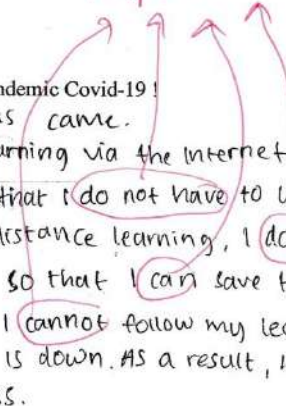 ndemic Covid-19 !
s came.
arning via the internet
that I do not have to
distance learning, I do
so that I can save t
I cannot follow my lec
is down. As a result, I
s.